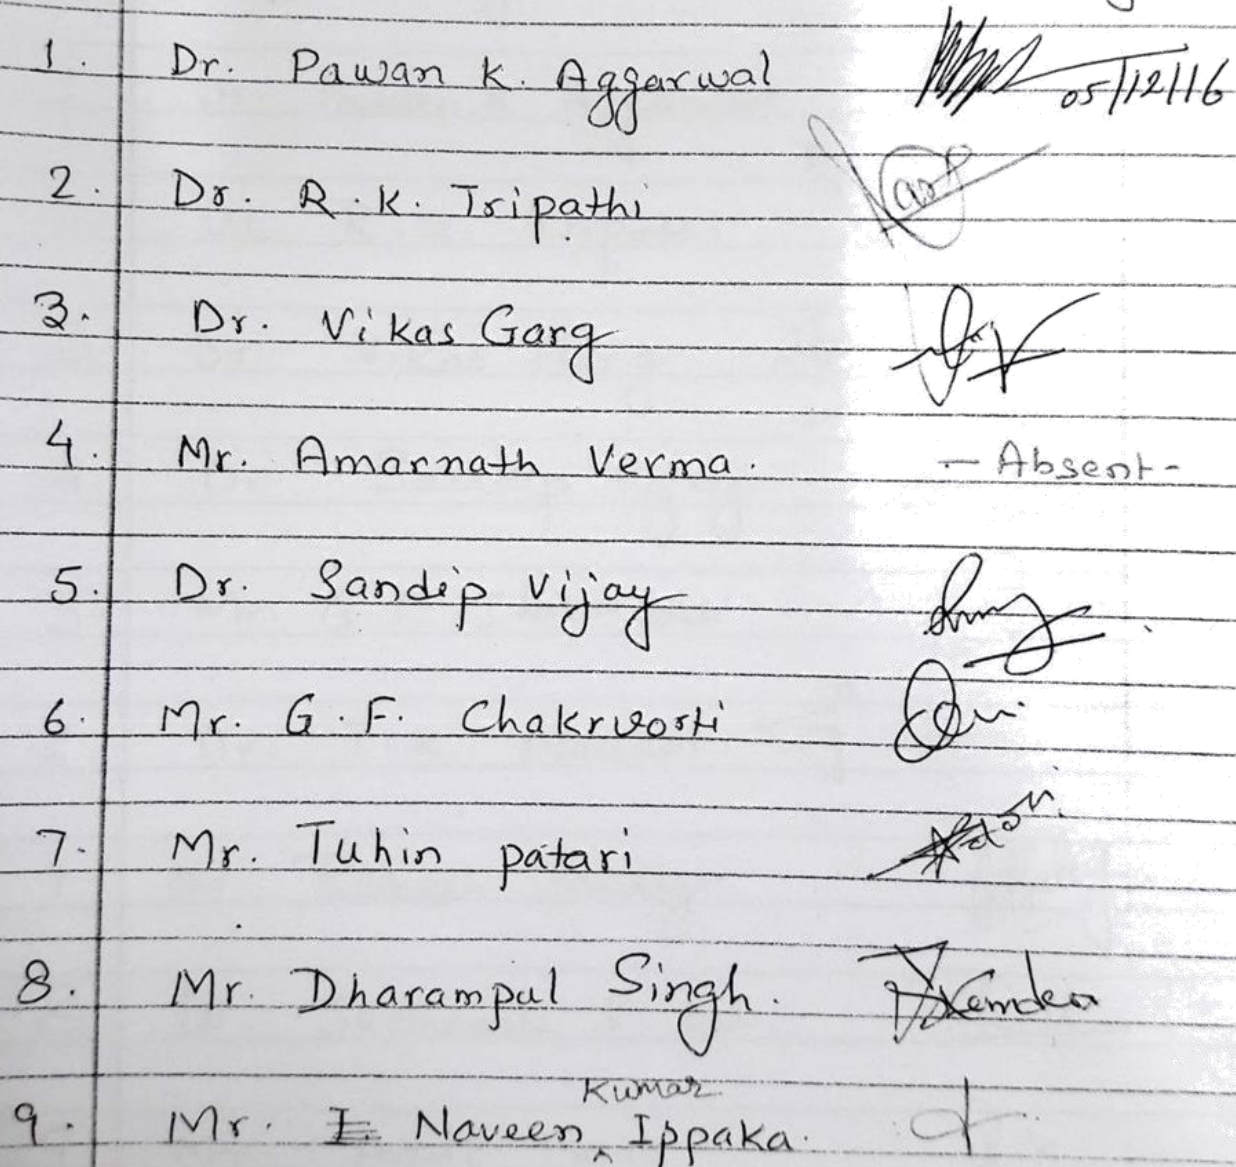 1. Dr. Pawan K. Aggarwal 05/12/16
2. Dr. R.K. Tripathi
3. Dr. Vikas Garg
4. Mr. Amarnath Verma. - Absent -
5. Dr. Sandip Vijay
6. Mr. G.F. Chakrvorti
7. Mr. Tuhin patari
8. Mr. Dharampal Singh.
Kumar
9. Mr. Naveen ^ Ippaka.